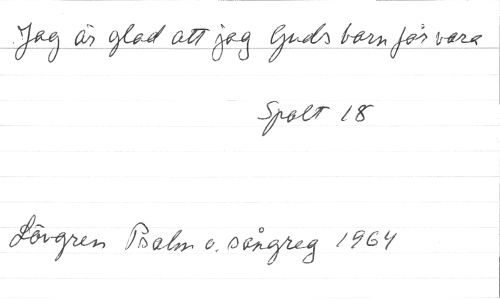 Jag är glad att jag Guds barn får vara
Spalt 18
Lövgren Psalm o. sångreg 1964